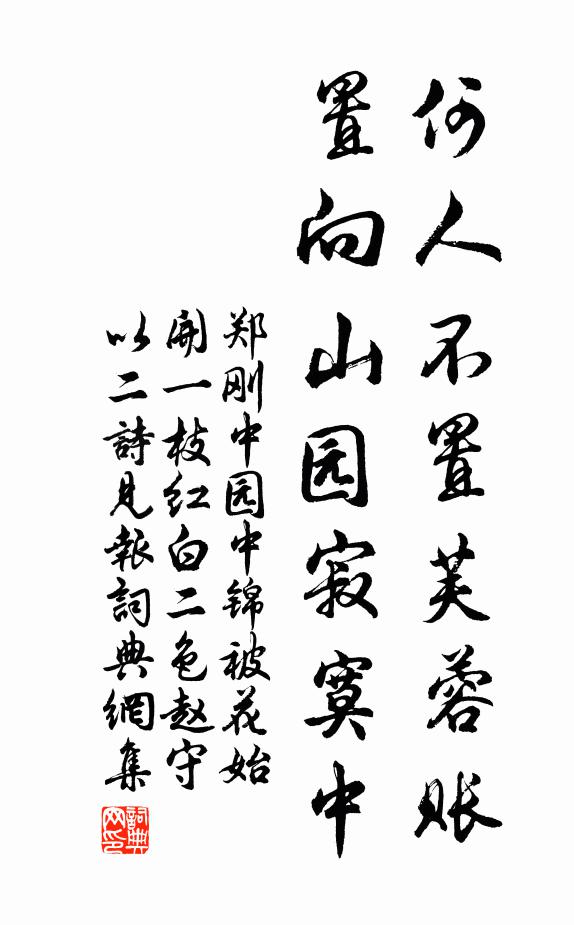 何人不置芙蓉账
置向山园寂寞中
郑刚中园中锦被花始
開一枝红白二色赵守
以二詩見報詞典網集
詞典
网印